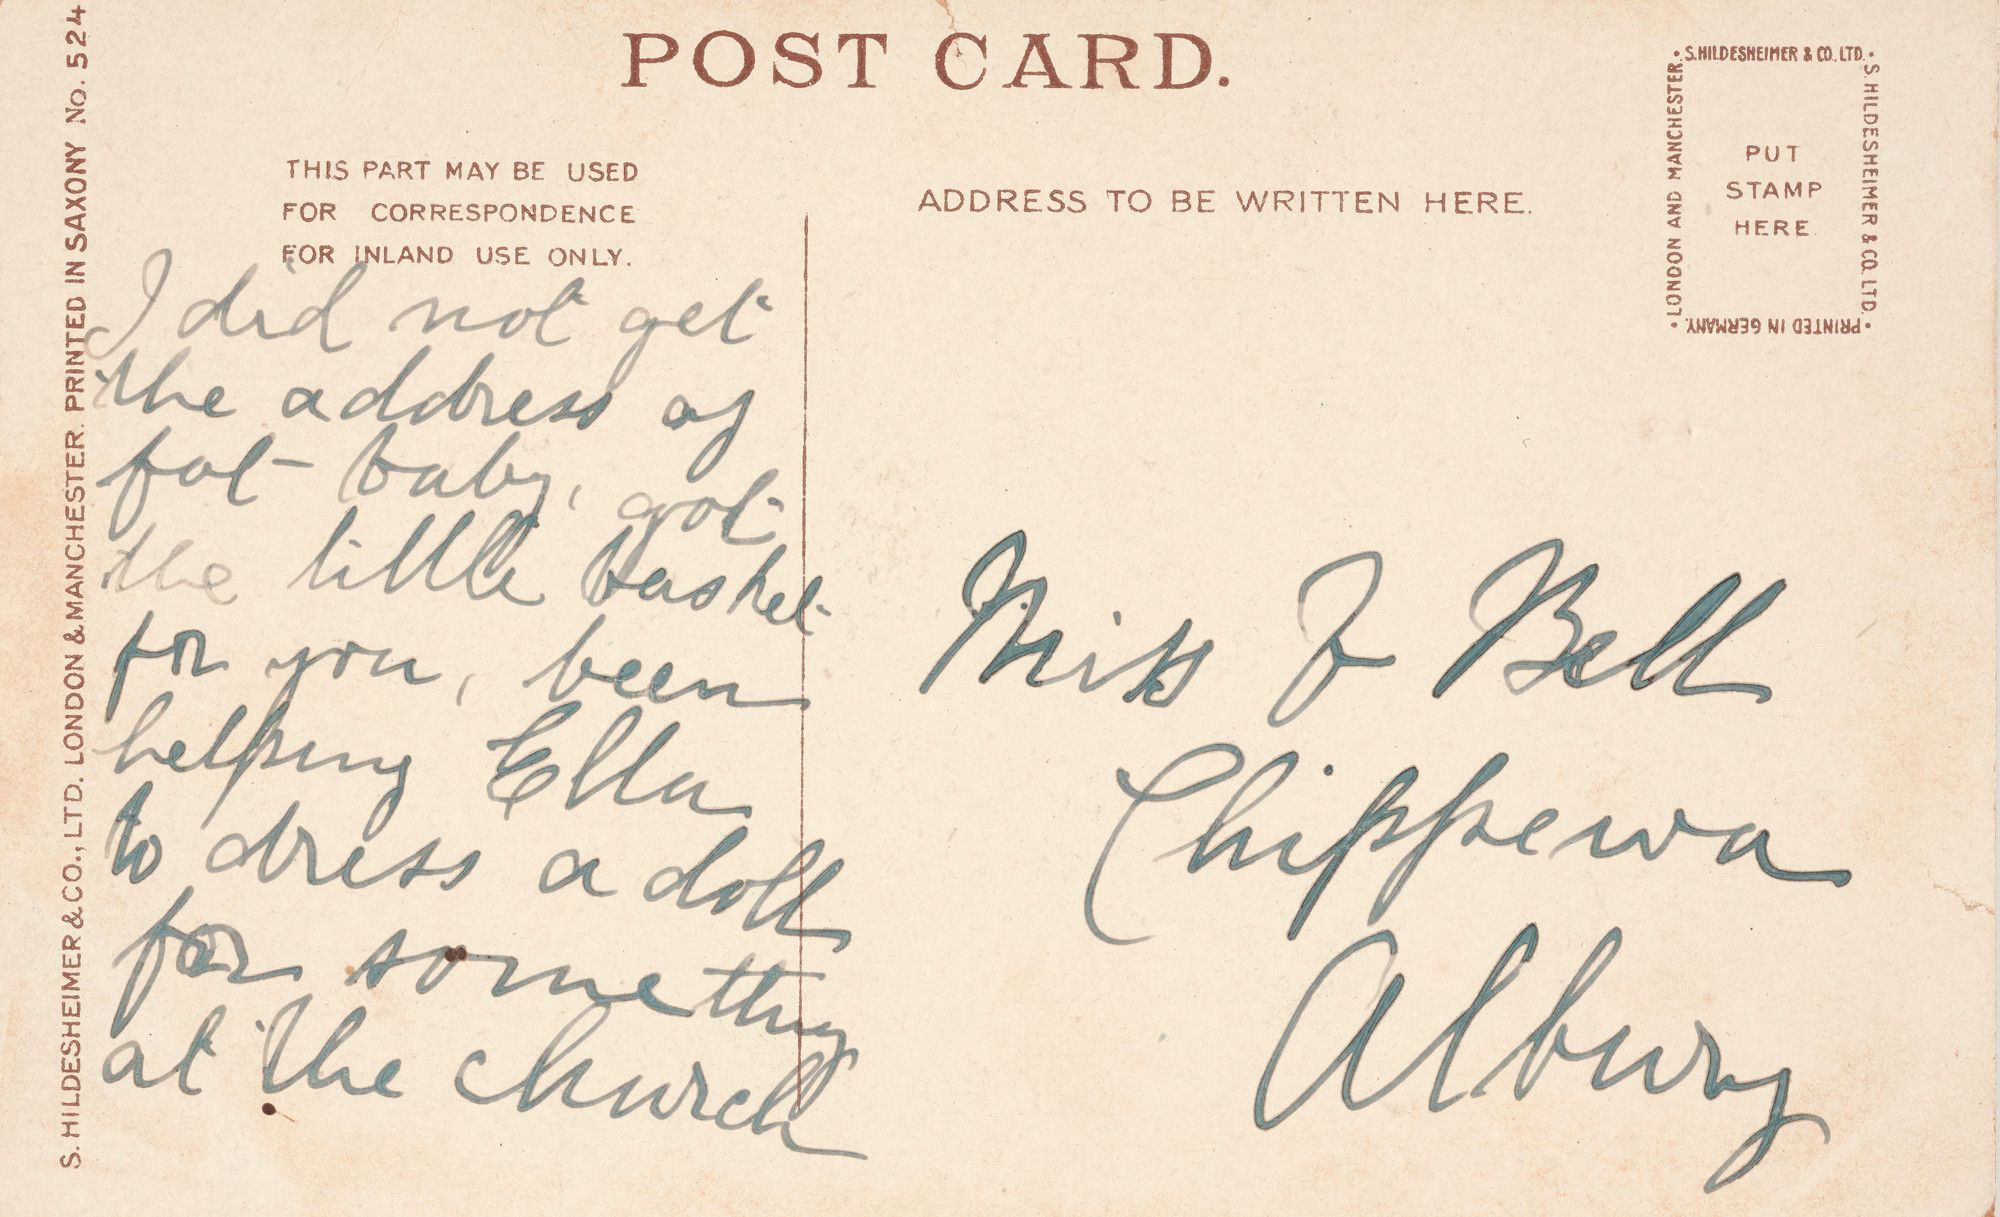 POST CARD.
THIS PART MAY BE USED
FOR CORRESPONDENCE
FOR INLAND USE ONLY.
ADDRESS TO BE WRITTEN HERE.
S. HILDESHEIMER & CO., LTD.
S. HILDESHEIMER & CO. LTD.
PRINTED IN GERMANY.
LONDON AND MANCHESTER.
PUT
STAMP
HERE
S. HILDESHEIMER & CO., LTD. LONDON & MANCHESTER. PRINTED IN SAXONY No. 524
I did not get
the address of
fat baby, got
the little basket
for you, been
helping Ella
to dress a doll
for something
at the church
Miss J Bell
Chippewa
Albury